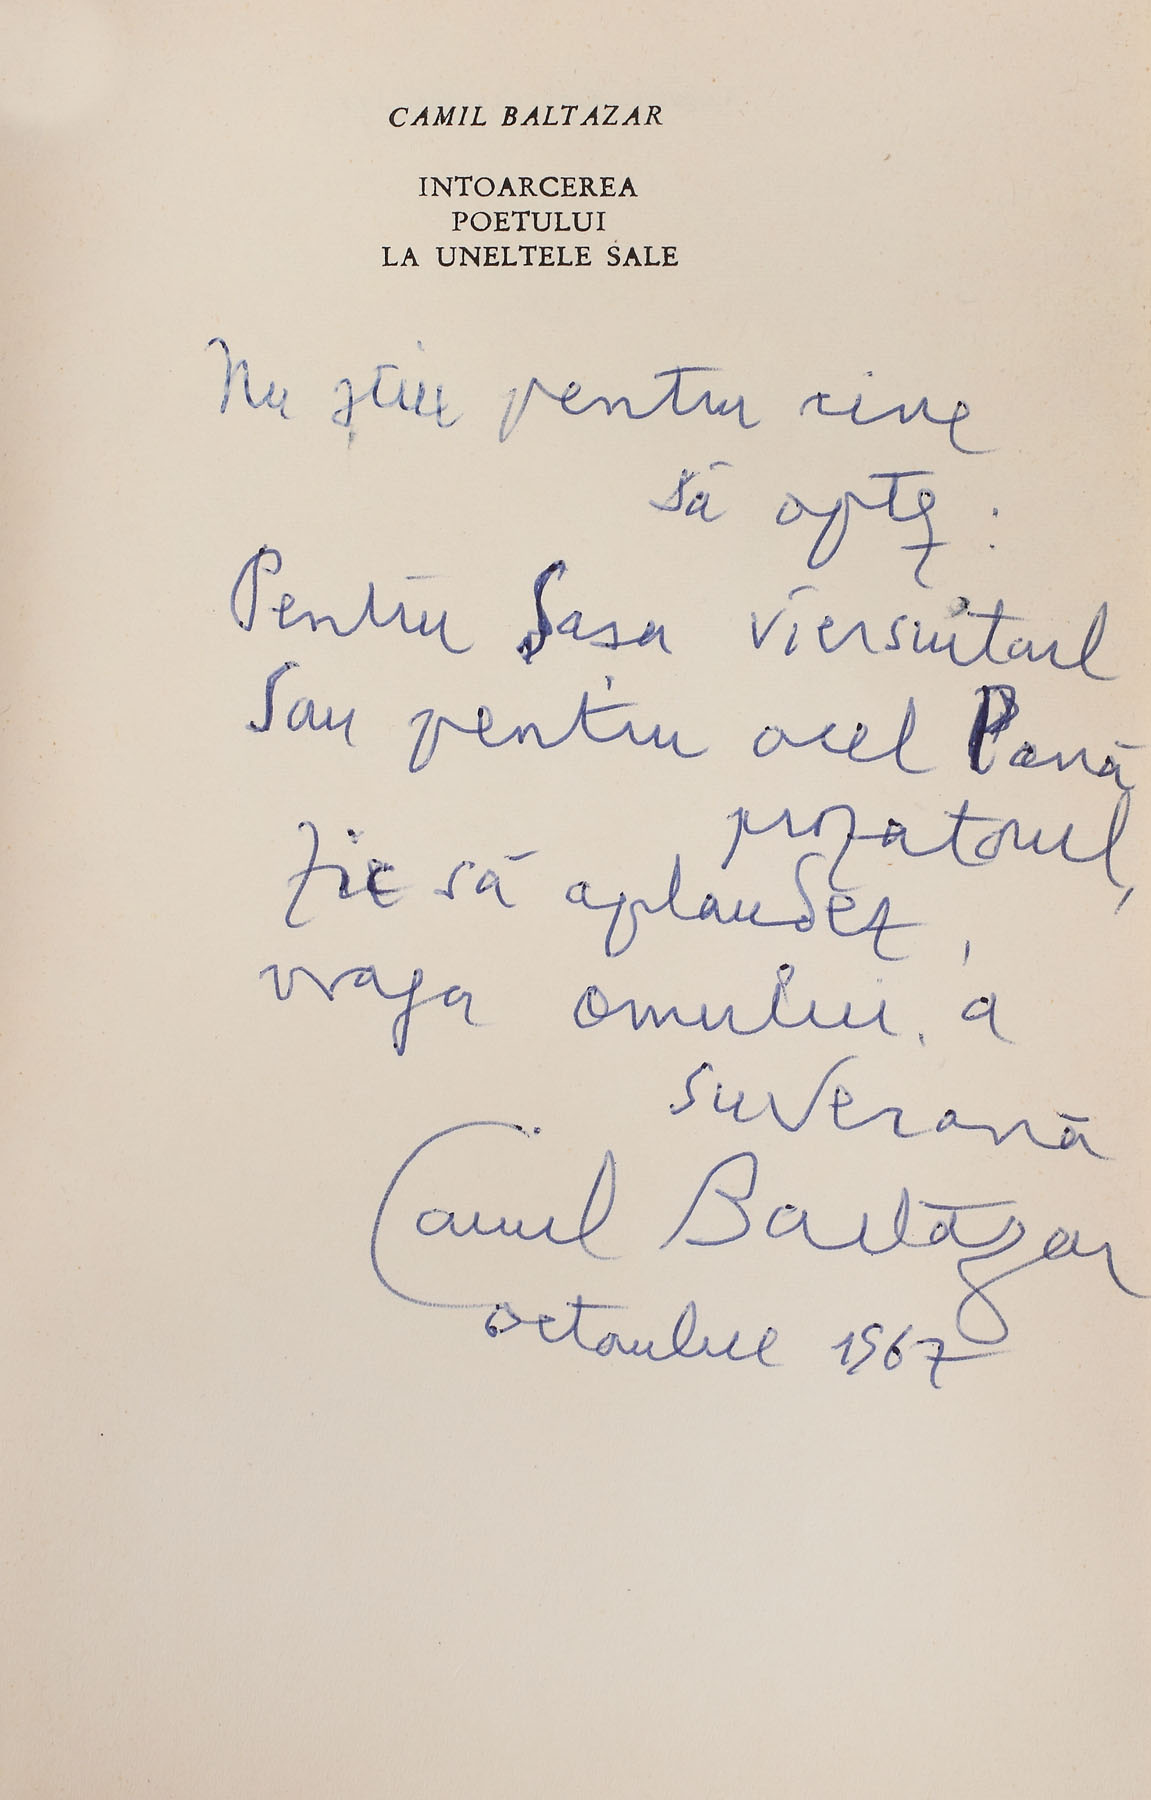 CAMIL BALTAZAR
INTOARCEREA
POETULUI
LA UNELTELE SALE
Nu știu pentru cine
să optez:
Pentru Șașa viersuitorul
Sau pentru acel Pană
prozatorul,
Zic să aplaudez,
vraja omului, a
suverană
Camil Baltazar
octombrie 1967